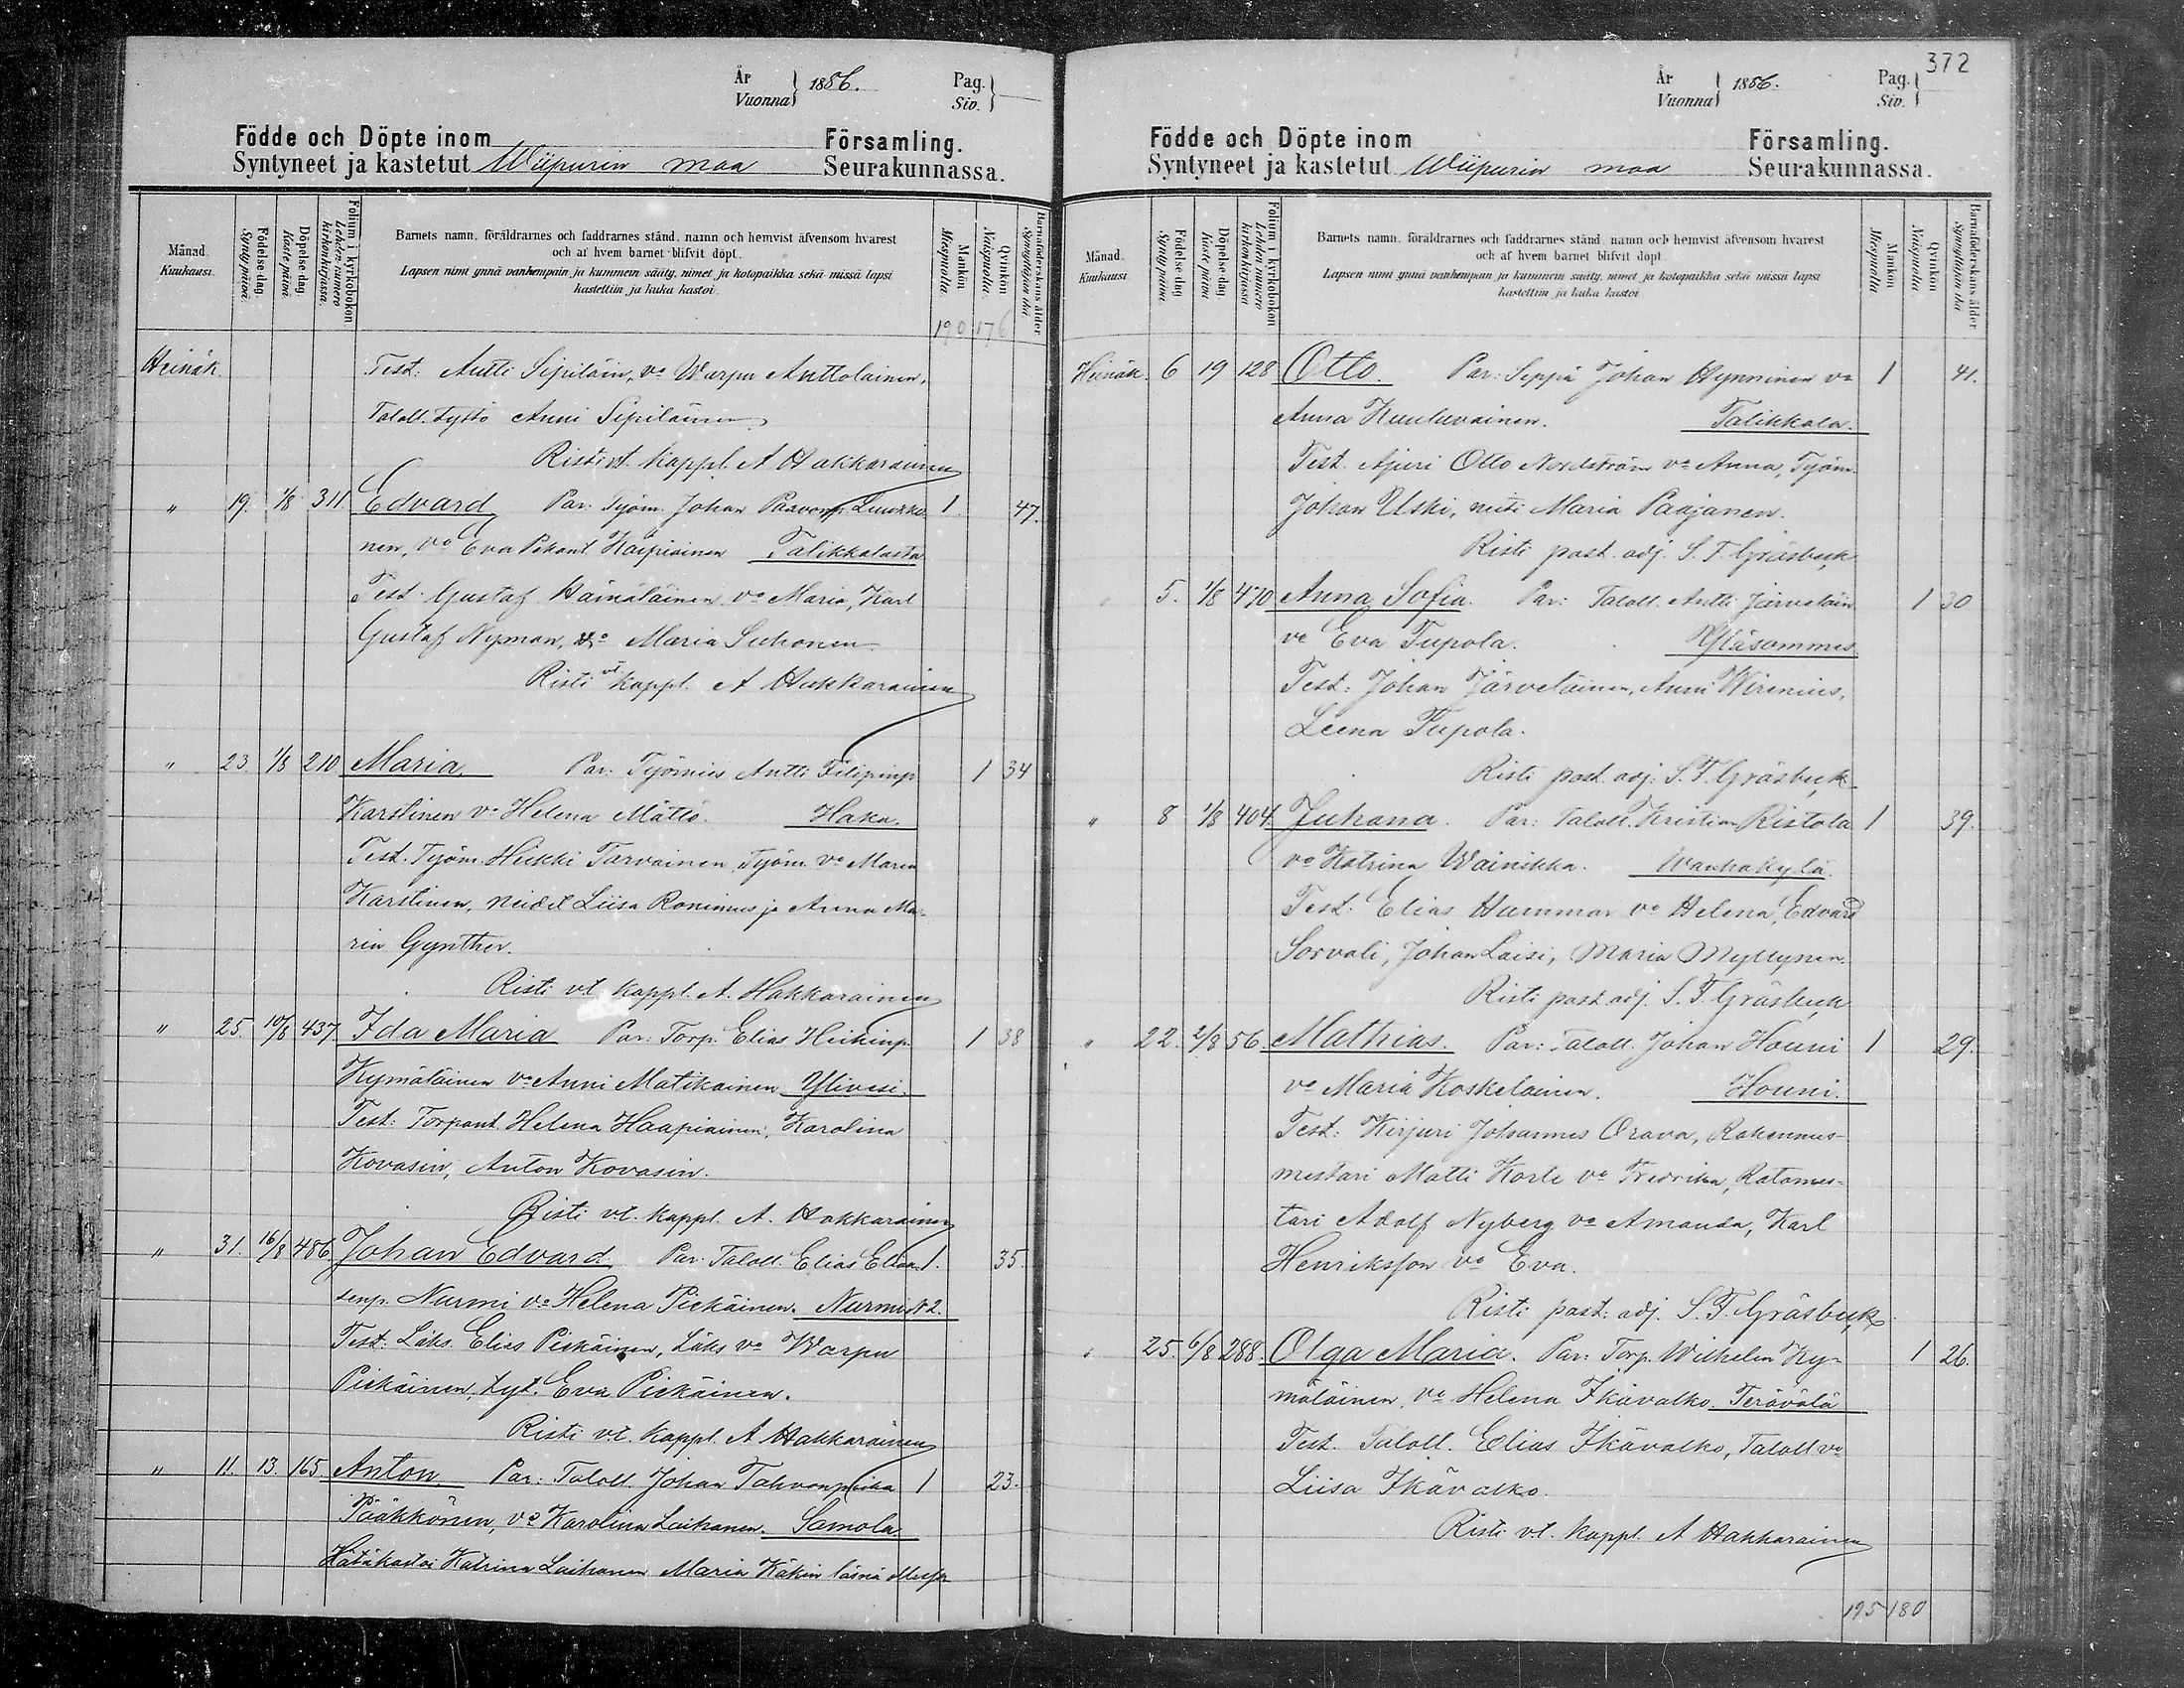 År
Vuonna } 1886. Pag.
Siv. } —
Födde och Döpte inom Församling.
Syntyneet ja kastetut Wiipurin maa Seurakunnassa.
Månad. Kuukausi. Födelse-dag. Synty päivä. Döpelse-dag. Kaste päivä. Folium i kyrkoboken Lehden numero kirkonkirjassa. Barnets namn, föräldrarnes och faddrarnes stånd, namn och hemvist äfvensom hvarest Mankön Miespuolia. Qvinkön Naispuolia. Barnaföderskans ålder Synnyttäjän ikä
och af hvem barnet blifvit döpt.
Lapsen nimi ynnä vanhempain ja kummein sääty, nimet ja kotopaikka sekä missä lapsi
kastettiin ja kuka kastoi.
190 176
Heinäk. Test: Antti Sipiläin, vo Warpu Anttolainen,
Taloll. tyttö Anni Sipiläinen
Risti vt. Kappl. A Hakkarainen
" 19. 1/8 311 Edvard Par: Työm. Johan Paavonp. Luukko- 1. 47.
nen, vo Eva Pekant. Kaipiainen Talikkalasta
Test: Gustaf Hämäläinen vo Maria, Karl
Gustaf Nyman, vo Maria Suhonen
Risti vt Kappl. A Hakkarainen
" 23. 1/8 210 Maria. Par: Työmies Antti Filipinp. 1 34
Karstinen vo Helena Mättö. Haka.
Test. Työm. Heikki Tarvainen, Työm. vo Maria
Karstinen, neidet Liisa Ronimus ja Anna Ma-
ria Gynther.
Risti vt. Kappl. A. Hakkarainen
" 25. 10/8 437. Ida Maria Par: Torp. Elias Heikinp. 1 38
Kymäläinen vo Anni Matikainen Ylivesi.
Test: Torpant. Helena Haapiainen, Karolina
Kovasin, Anton Kovasin.
Risti vt. Kappl. A. Hakkarainen
" 31. 16/8 486 Johan Edvard Par: Taloll. Elias Elian- 1. 35.
senp. Nurmi vo Helena Pickäinen. Nurmi № 2.
Test: Läks. Elias Pickäinen, Läks vo Warpu
Pickäinen, tyt. Eva Pickäinen.
Risti vt. Kappl. A Hakkarainen
" 11. 13. 165. Anton Par: Taloll. Johan Tahvonpoika 1 23.
Pääkkönen, vo Karolina Laihanen. Samola.
Hätäkastoi Katrina Laihanen Maria Käkin läsnä
372
År
Vuonna } 1886. Pag.
Siv. }
Födde och Döpte inom Församling.
Syntyneet ja kastetut Wiipurin maa Seurakunnassa.
Månad. Kuukausi. Födelse-dag Synty päivä Döpelse-dag Kaste päivä Folium i kyrkoboken Lehden numero kirkonkirjassa Barnets namn, föräldrarnes och faddrarnes stånd, namn och hemvist äfvensom hvarest Mankön Miespuolia Qvinkön Naispuolia Barnaföderskans ålder Synnyttäjän ikä
och af hvem barnet blifvit döpt
Lapsen nimi ynnä vanhempain ja kummein sääty, nimet ja kotopaikka sekä missä lapsi
kastettiin ja kuka kastoi
Heinäk. 6 19 128 Otto. Par: Seppä Johan Hynninen vo 1 41.
Anna Kuuluvainen. Talikkala.
Test. Ajuri Otto Nordström vo Anna, Työm.
Johan Uski, neiti Maria Paajanen.
Risti past. adj. S. F. Gräsbeck
" 5. 1/8 470 Anna Sofia. Par: Taloll. Antti Järveläin 1 30
vo Eva Tupola. Yläsommes
Test: Johan Järveläinen, Anni Wirenius,
Leena Tupola.
Risti past. adj: S. F. Gräsbeck
" 8 1/8 404. Juhana. Par: Taloll. Kristian Ristola 1 39.
vo Katrina Wainikka. Wanhakylä.
Test: Elias Hammar vo Helena, Edvard
Sorvali, Johan Laisi, Maria Myllynen.
Risti past. adj. S. F. Gräsbeck
" 22. 2/8 56. Mathias. Par: Taloll. Johan Houni 1 29.
vo Maria Koskelainen. Houni.
Test: Kirjuri Johannes Orava, Rakennus-
mestari Matti Korte vo Fredrika, Ratames-
tari Adolf Nyberg vo Amanda, Karl
Henriksson vo Eva.
Risti past: adj. S. F. Gräsbeck
" 25. 6/8 288. Olga Maria. Par: Torp. Wilhelm Ky- 1 26.
mäläinen, vo Helena Ikävalko. Terävälä
Test. Taloll. Elias Ikävalko, Taloll vo
Liisa Ikävalko.
Risti vt. Kappl. A Hakkarainen
195 180